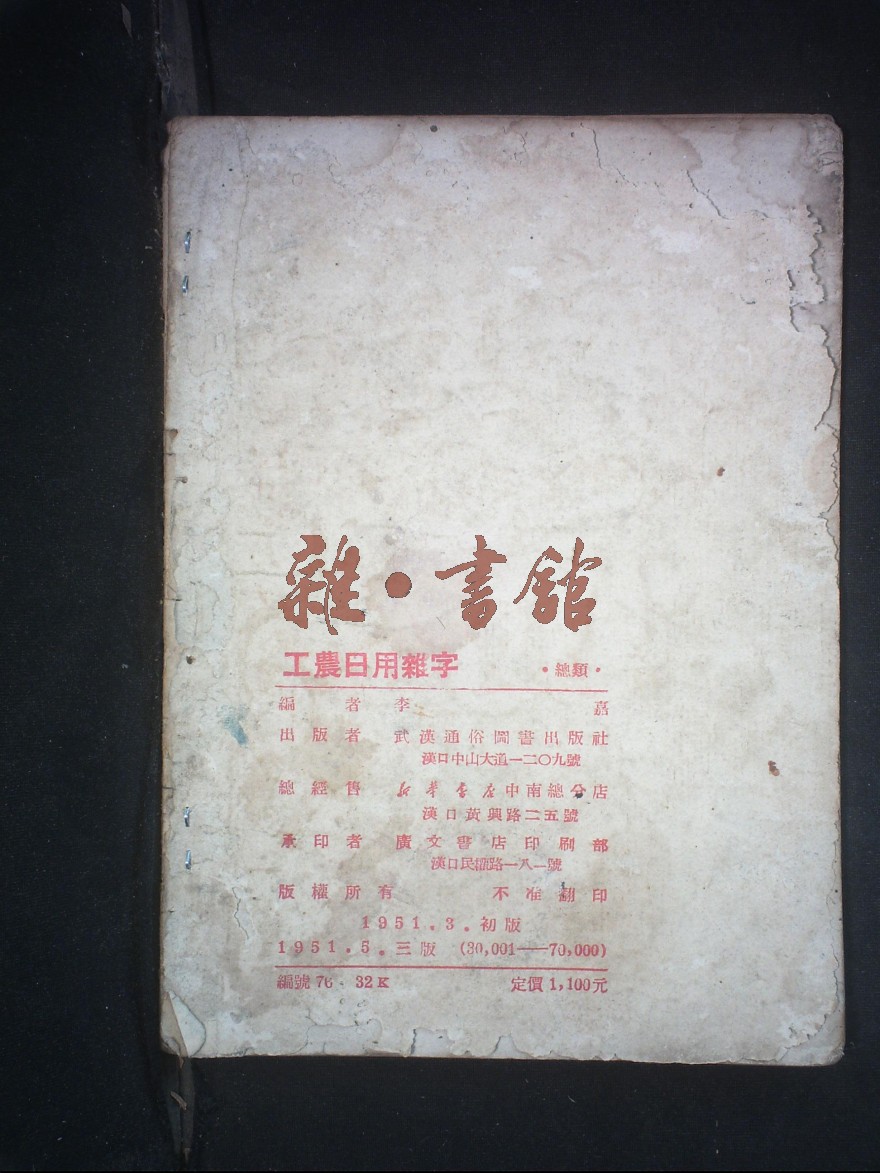 雜·書館
工農日用雜字 ·總類·
編者 李嘉
出版者 武漢通俗圖書出版社
漢口中山大道一二〇九號
總經售 新華書店中南總分店
漢口黃興路二五號
承印者 廣文書店印刷部
漢口民權路一八一號
版權所有 不准翻印
1951.3.初版
1951.5.三版 (30,001——70,000)
編號76·32K 定價1,100元